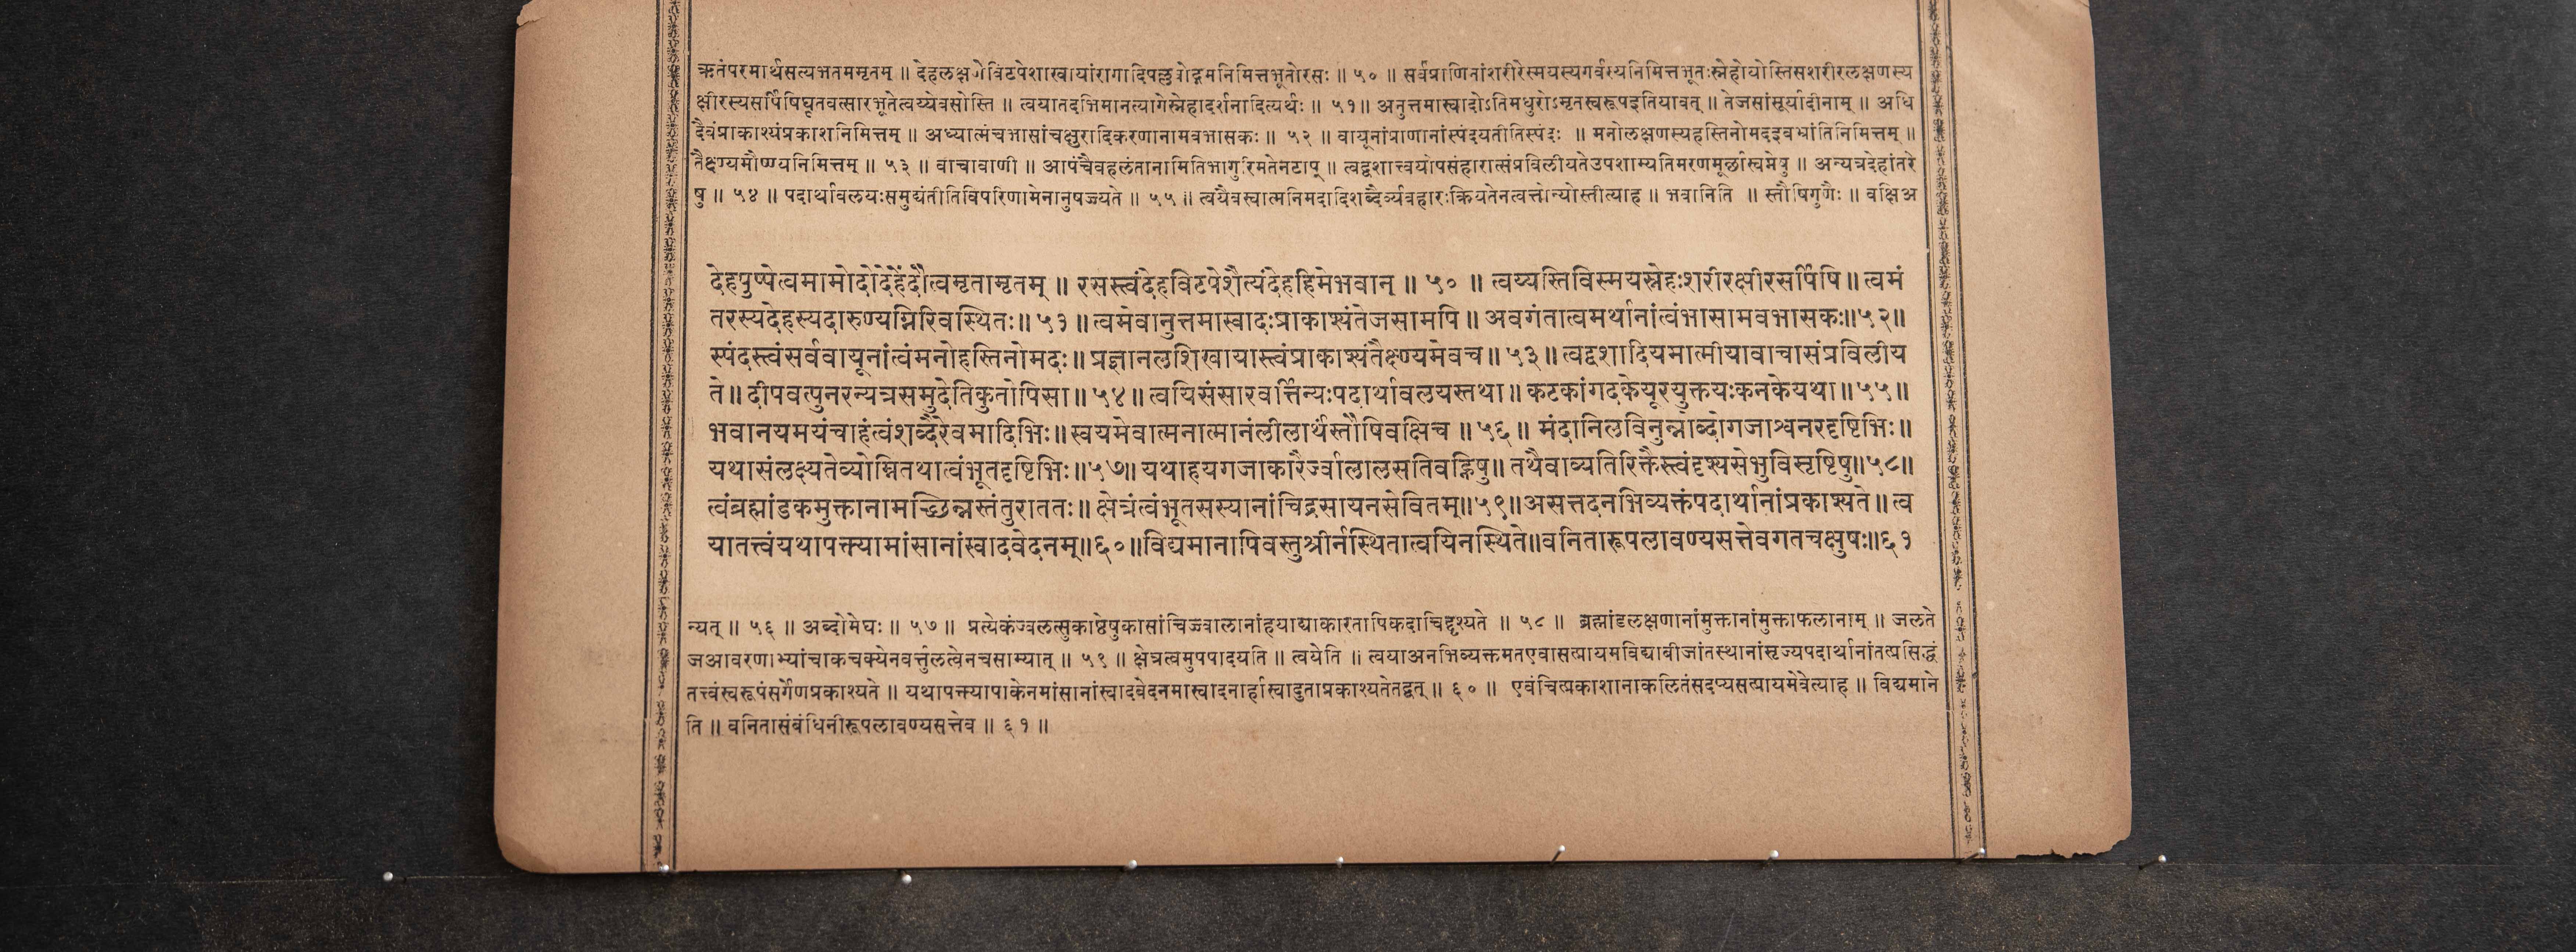 ऋतंपरमार्थसत्यभतममृतम् ॥ देहलक्षणेविटपेशाखायांरागादिपल्लवोद्गमनिमित्तभूतोरसः ॥ ५० ॥ सर्वप्राणिनांशरीरेस्मयस्यगर्वस्यनिमित्तभूतःस्नेहोयोस्तिसशरीरलक्षणस्य
क्षीरस्यसर्पिषिघृतवत्सारभूतेत्वय्येवसोस्ति ॥ त्वयातदभिमानत्यागेस्नेहादर्शनादित्यर्थः ॥ ५१॥ अनुत्तमास्वादोऽतिमधुरोऽमृतस्वरूपइतियावत् ॥ तेजसांसूर्यादीनाम् ॥ अधि
दैवंप्राकाश्यंप्रकाशनिमित्तम् ॥ अध्यात्मंचभासांचक्षुरादिकरणानामवभासकः ॥ ५२ ॥ वायूनांप्राणानांस्पंदयतीतिस्पंदः ॥ मनोलक्षणस्यहस्तिनोमदइवभ्रांतिनिमित्तम् ॥
तैक्ष्ण्यमौष्ण्यनिमित्तम् ॥ ५३ ॥ वाचावाणी ॥ आपंचैवहलंतानामितिभागुरिमतेनटाप् ॥ त्वद्वशात्त्वयोपसंहारात्संप्रविलीयतेउपशाम्यतिमरणमूर्छास्वप्नेषु ॥ अन्यत्रदेहांतरे
षु ॥ ५४ ॥ पदार्थावलयःसमुद्यंतीतिविपरिणामेनानुषज्यते ॥ ५५ ॥ त्वयैवस्वात्मनिमदादिशब्दैर्व्यवहारःक्रियतेनत्वत्तोन्योस्तीत्याह ॥ भवानिति ॥ स्तौषिगुणैः ॥ वक्षिअ
देहपुष्पेत्वमामोदोदेहेंदौत्वमृतामृतम् ॥ रसस्त्वंदेहविटपेशैत्यंदेहहिमेभवान् ॥ ५० ॥ त्वय्यस्तिविस्मयस्नेहःशरीरक्षीरसर्पिषि॥ त्वमं
तरस्यदेहस्यदारुण्यग्निरिवस्थितः॥ ५१॥ त्वमेवानुत्तमास्वादःप्राकाश्यंतेजसामपि॥ अवगंतात्वमर्थानांत्वंभासामवभासकः॥५२॥
स्पंदस्त्वंसर्ववायूनांत्वंमनोहस्तिनोमदः॥ प्रज्ञानलशिखायास्त्वंप्राकाश्यंतैक्ष्ण्यमेवच॥ ५३॥ त्वद्वशादियमात्मीयावाचासंप्रविलीय
ते॥ दीपवत्पुनरन्यत्रसमुदेतिकुतोपिसा॥ ५४॥ त्वयिसंसारवर्त्तिन्यःपदार्थावलयस्तथा॥ कटकांगदकेयूरयुक्तयःकनकेयथा॥५५॥
भवानयमयंचाहंत्वंशब्दैरेवमादिभिः॥ स्वयमेवात्मनात्मानंलीलार्थंस्तौषिवक्षिच ॥ ५६॥ मंदानिलविनुन्नोब्दोगजाश्वनरदृष्टिभिः॥
यथासंलक्ष्यतेव्योम्नितथात्वंभूतदृष्टिभिः॥५७॥ यथाहयगजाकारैर्ज्वालालसतिवह्निषु॥ तथैवाव्यतिरिक्तैस्त्वंदृश्यसेभुविसृष्टिषु॥५८॥
त्वंब्रह्मांडकमुक्तानामच्छिन्नस्तंतुराततः॥ क्षेत्रंत्वंभूतसस्यानांचिद्रसायनसेवितम्॥५९॥असत्तदनभिव्यक्तंपदार्थानांप्रकाश्यते॥ त्व
यातत्त्वंयथापक्त्यामांसानांस्वादवेदनम्॥६०॥विद्यमानापिवस्तुश्रीर्नस्थितात्वयिनस्थिते॥वनितारूपलावण्यसत्तेवगतचक्षुषः॥६१
न्यत् ॥ ५६ ॥ अब्दोमेघः ॥ ५७ ॥ प्रत्येकंज्वलत्सुकाष्ठेषुकासांचिज्ज्वालानांहयाद्याकारतापिकदाचिद्दृश्यते ॥ ५८ ॥ ब्रह्मांडलक्षणानांमुक्तानांमुक्ताफलानाम् ॥ जलते
जआवरणाभ्यांचाकचक्येनवर्त्तुलत्वेनचसाम्यात् ॥ ५९ ॥ क्षेत्रत्वमुपपादयति ॥ त्वयेति ॥ त्वयाअनभिव्यक्तमतएवासत्प्रायमविद्याबीजांतस्थानांसृज्यपदार्थानांतत्प्रसिद्धं
तत्त्वंस्वरूपंसर्गेणप्रकाश्यते ॥ यथापक्त्यापाकेनमांसानांस्वादवेदनमास्वादनार्हास्वादुताप्रकाश्यतेतद्वत् ॥ ६० ॥ एवंचित्प्रकाशानाकलितंसदप्यसत्प्रायमेवेत्याह ॥ विद्यमाने
ति ॥ वनितासंबंधिनीरूपलावण्यसत्तेव ॥ ६१ ॥